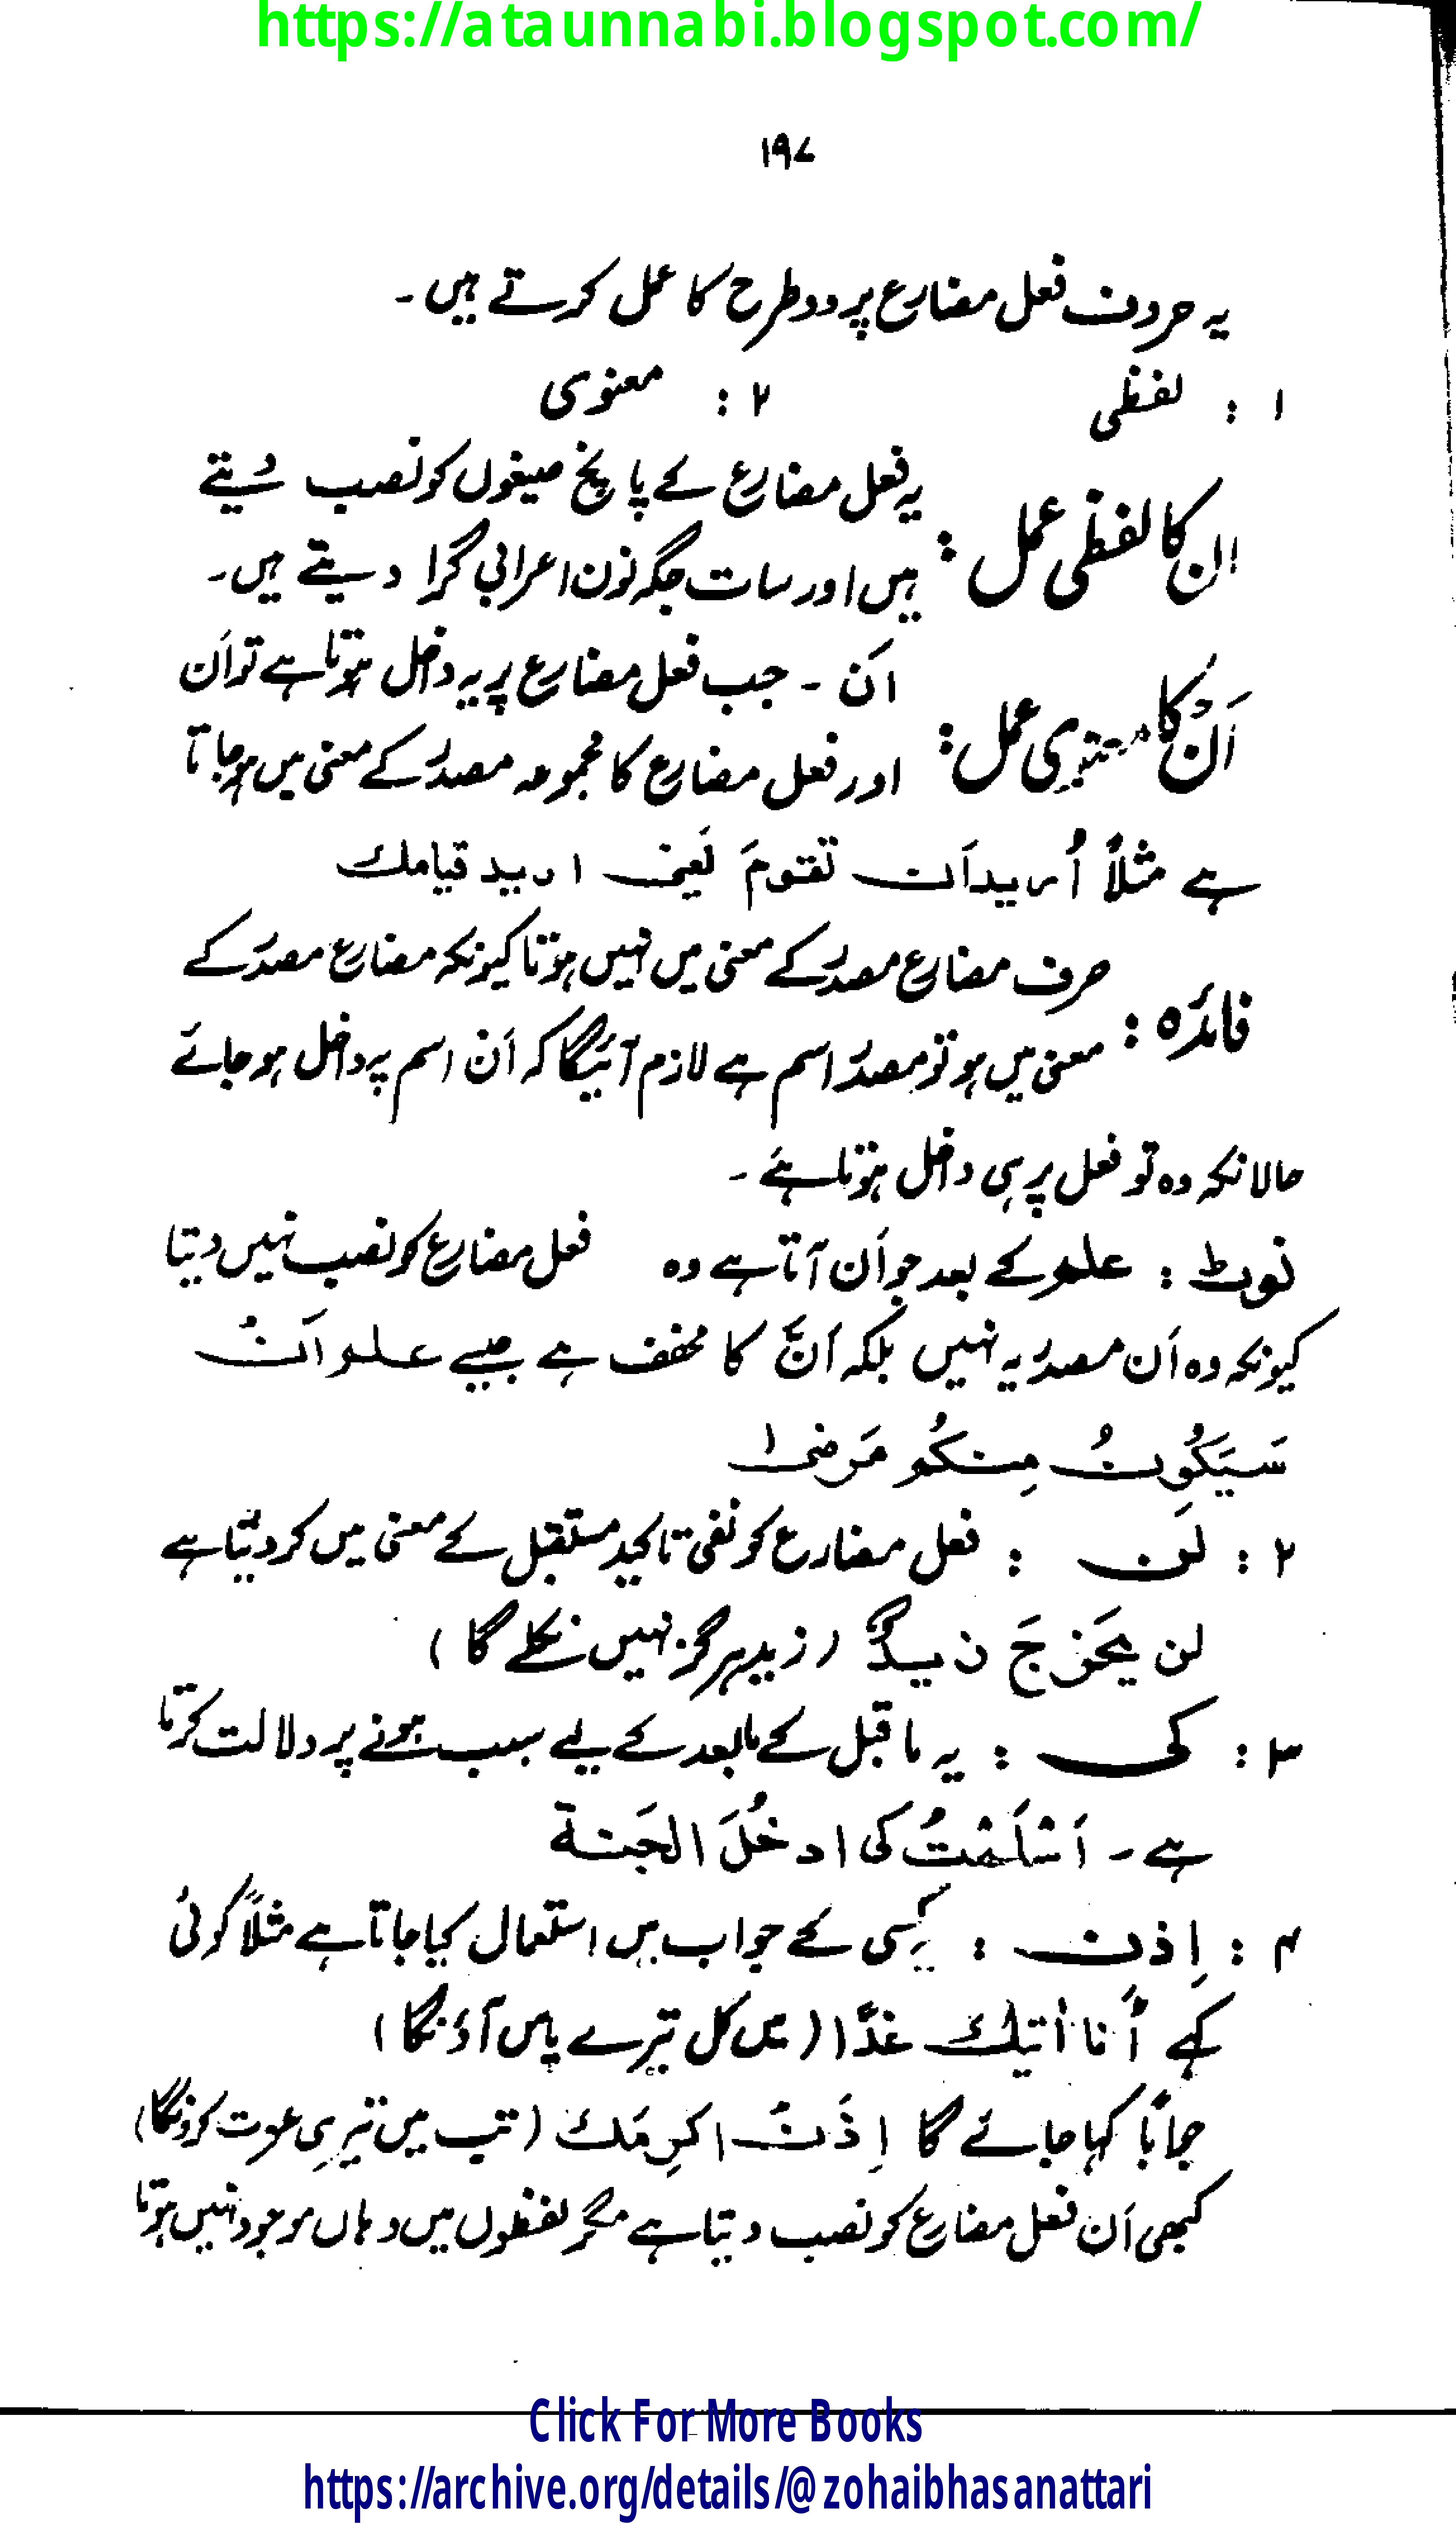 https://ataunnabi.blogspot.com/
۱۹۷
یہ حروف فعل مضارع پر دو طرح کا عمل کرتے ہیں۔
۱ : لفظی ۲ : معنوی
ان کا لفظی عمل : یہ فعل مضارع کے پانچ صیغوں کو نصب دیتے
ہیں اور سات جگہ نون اعرابی گرا دیتے ہیں۔
اَنْ کا معنوی عمل : اَن ۔ جب فعل مضارع پر یہ داخل ہوتا ہے تو اَن
اور فعل مضارع کا مجموعہ مصدر کے معنی میں ہو جاتا
ہے مثلاً اُریداَن تقومَ یَعنی ارید قیامك
فائدہ : صرف مضارع مصدر کے معنی میں نہیں ہوتا کیونکہ مضارع مصدر کے
معنی میں ہو تو مصدر اسم ہے لازم آئیگا کہ اَن اسم پر داخل ہو جائے
حالانکہ وہ تو فعل پر ہی داخل ہوتا ہے ۔
نوٹ : علم کے بعد جو اَن آتا ہے وہ فعل مضارع کو نصب نہیں دیتا
کیونکہ وہ اَن مصدریہ نہیں بلکہ اَنَّ کا مخفف ہے جیسے علم اَنْ
سَیَکُونُ مِنکُم مَرضیٰ
۲ : لَن : فعل مضارع کو نفی تاکید مستقبل کے معنی میں کر دیتا ہے
لن یَخرجَ زیدٌ (زید ہرگز نہیں نکلے گا)
۳ : کی : یہ ماقبل کے مابعد کے لیے سبب ہونے پر دلالت کرتا
ہے ۔ اَسْلَمْتُ کی ادخُلَ الجَنة
۴ : اِذن : کسی کے جواب میں استعمال کیا جاتا ہے مثلاً کوئی
کہے أنا اٰتیك غدًا (میں کل تیرے پاس آؤنگا)
جواباً کہا جائے گا اِذَنْ اکرِمَك (تب میں تیری عزت کرونگا)
کبھی اَن فعل مضارع کو نصب دیتا ہے مگر لفظوں میں وہاں موجود نہیں ہوتا
Click For More Books
https://archive.org/details/@zohaibhasanattari